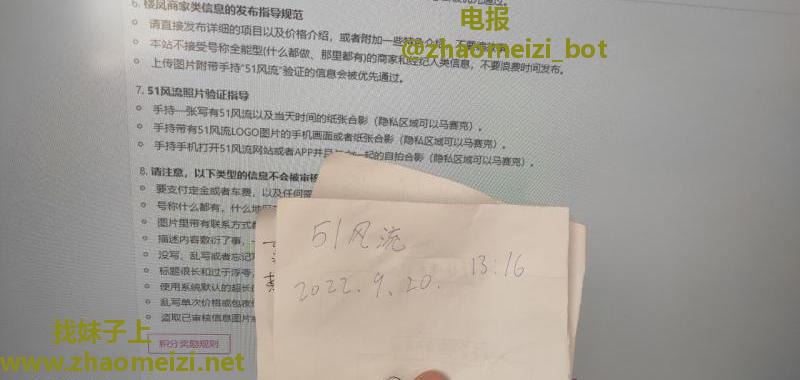 6. 楼凤商家类信息的发布指导规范
请直接发布详细的项目以及价格介绍，或者附加一些
电报
@zhaomeizi_bot
本站不接受号称全能型(什么都做、那里都有)的商家和经纪人类信息，不要浪费时间发布。
上传图片附带手持"51风流"验证的信息会被优先通过。
7. 51风流照片验证指导
手持一张写有51风流以及当天时间的纸张合影（隐私区域可以马赛克）。
手持带有51风流LOGO图片的手机画面或者纸张合影（隐私区域可以马赛克）。
手持手机打开51风流网站或者APP并且与 一起的自拍合影（隐私区域可以马赛克）。
8. 请注意，以下类型的信息不会被审核
要支付定金或者车费，以及任何需
号称什么都有，什么地区
图片里带有联系方式或
描述内容敷衍了事，
没写、乱写或者忘记写
标题很长和过于浮夸，
使用系统默认的超长
乱写单次价格或包夜价
盗取已审核信息图片
积分奖励规则
51风流
2022.9.20. 13:16
找妹子上
www.zhaomeizi.net